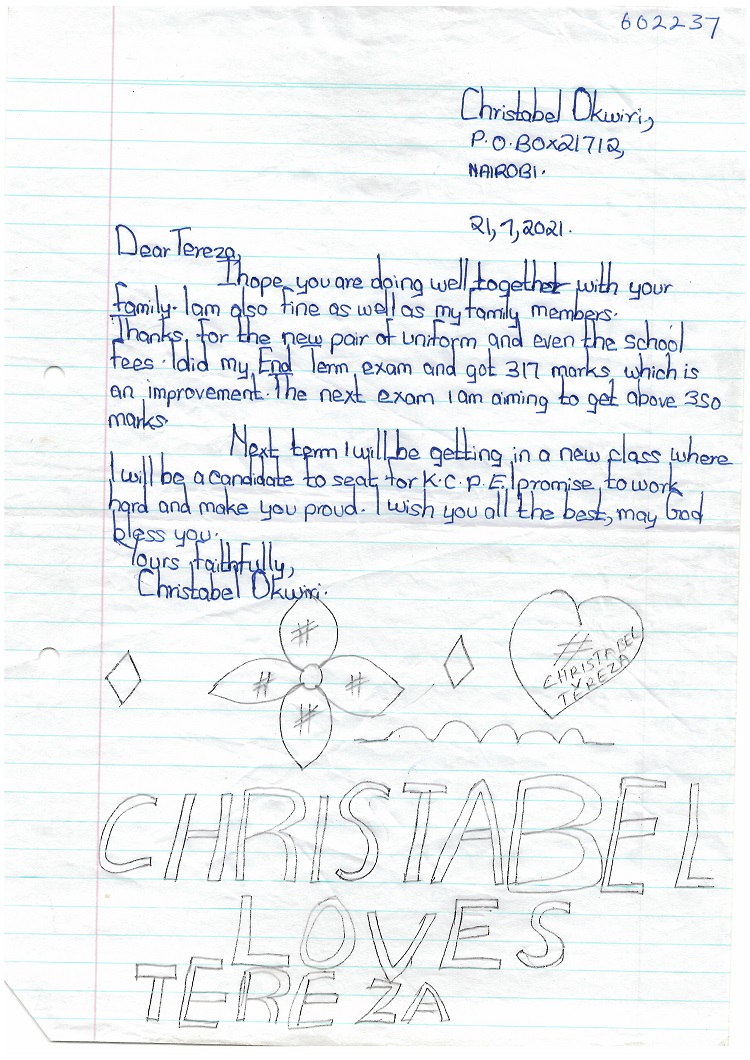 602237
Christabel Okwiri,
P.O.BOX21712,
NAIROBI.
21,7,2021.
Dear Tereza,
I hope you are doing well together with your
family. I am also fine as well as my family members.
Thanks for the new pair of uniform and even the school
fees. I did my End Term exam and got 317 marks, which is
an improvement. The next exam I am aiming to get above 350
marks.
Next term I will be getting in a new class where
I will be a candidate to seat for K.C.P.E. I promise to work
hard and make you proud. I wish you all the best, may God
bless you.
Yours faithfully,
Christabel Okwiri.
#
# #
#
#
CHRISTABEL
X
TEREZA
CHRISTABEL
LOVES
TEREZA